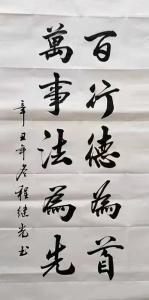 百行德為首
萬事法為先
辛丑年冬程继光书